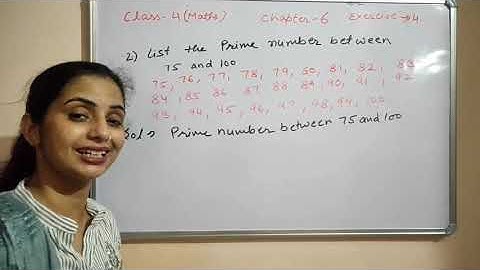 Class-4 (Maths) Chapter-6 Exercise → 4.
2) List the Prime number between
75 and 100
75, 76, 77, 78, 79, 80, 81, 82, 83
84, 85 86 87 88 89, 90, 91, 92
93, 94, 95, 96, 97, 98, 99, 100
Sol → Prime number between 75 and 100